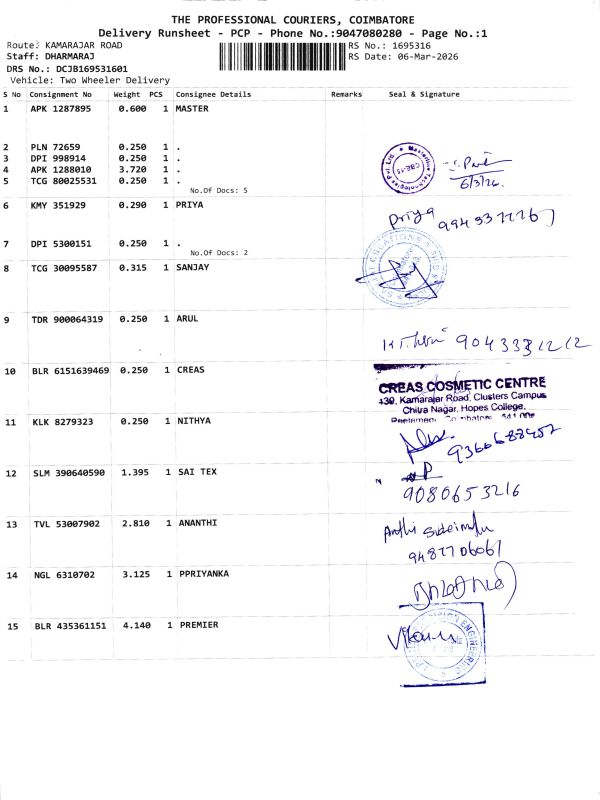 THE PROFESSIONAL COURIERS, COIMBATORE
Delivery Runsheet - PCP - Phone No.:9047080280 - Page No.:1
Route: KAMARAJAR ROAD RS No.: 1695316
Staff: DHARMARAJ RS Date: 06-Mar-2026
DRS No.: DCJB169531601
Vehicle: Two Wheeler Delivery
S No Consignment No Weight PCS Consignee Details Remarks Seal & Signature
1 APK 1287895 0.600 1 MASTER
2 PLN 72659 0.250 1 .
3 DPI 998914 0.250 1 .
4 APK 1288010 3.720 1 .
5 TCG 80025531 0.250 1 .
No.Of Docs: 5
6/3/26.
6 KMY 351929 0.290 1 PRIYA
Priya
7 DPI 5300151 0.250 1 .
No.Of Docs: 2
8 TCG 30095587 0.315 1 SANJAY
9 TDR 900064319 0.250 1 ARUL
10 BLR 6151639469 0.250 1 CREAS
CREAS COSMETIC CENTRE
130, Kamarajar Road, Clusters Campus
Chitra Nagar, Hopes College,
11 KLK 8279323 0.250 1 NITHYA
12 SLM 390640590 1.395 1 SAI TEX
9080653216
13 TVL 53007902 2.810 1 ANANTHI
9487706061
14 NGL 6310702 3.125 1 PPRIYANKA
15 BLR 435361151 4.140 1 PREMIER